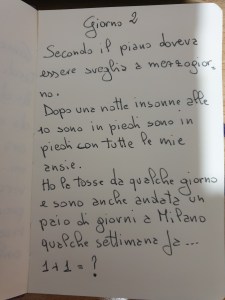 Giorno 2
Secondo il piano dovevo
essere sveglia a mezzogior-
no.
Dopo una notte insonne alle
10 sono in piedi sono in
piedi con tutte le mie
ansie.
Ho la tosse da qualche giorno
e sono anche andata un
paio di giorni a Milano
qualche settimana fa...
1+1 = ?